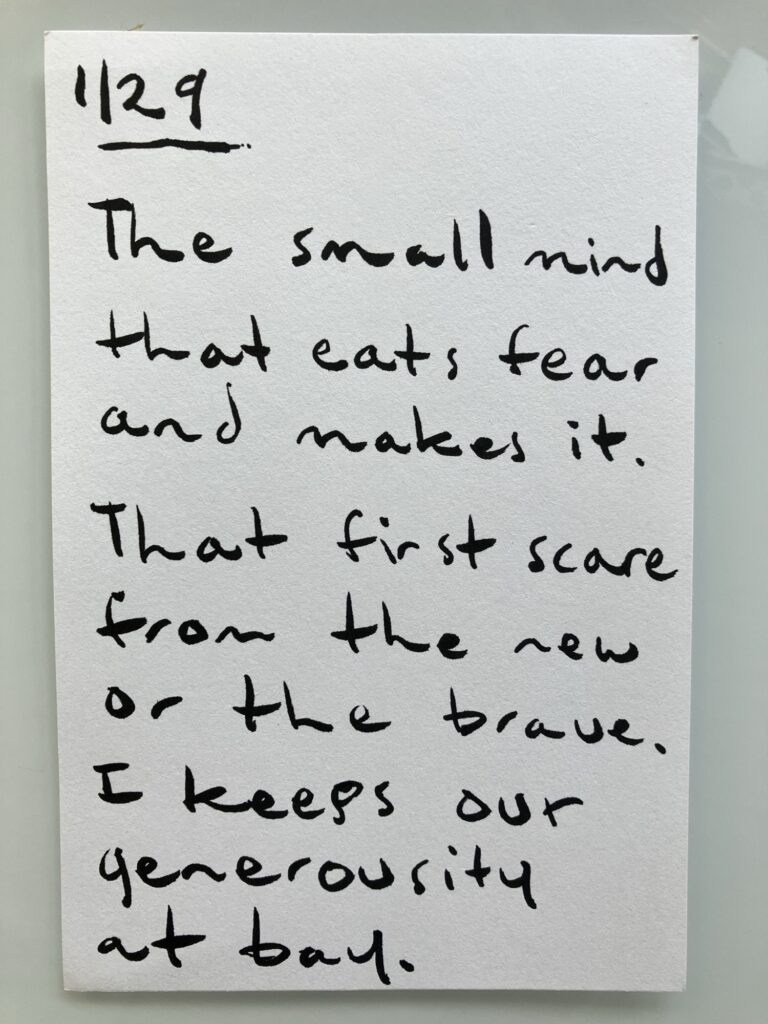 1/29
The small mind
that eats fear
and makes it.
That first scare
from the new
or the brave.
I keeps our
generousity
at bay.